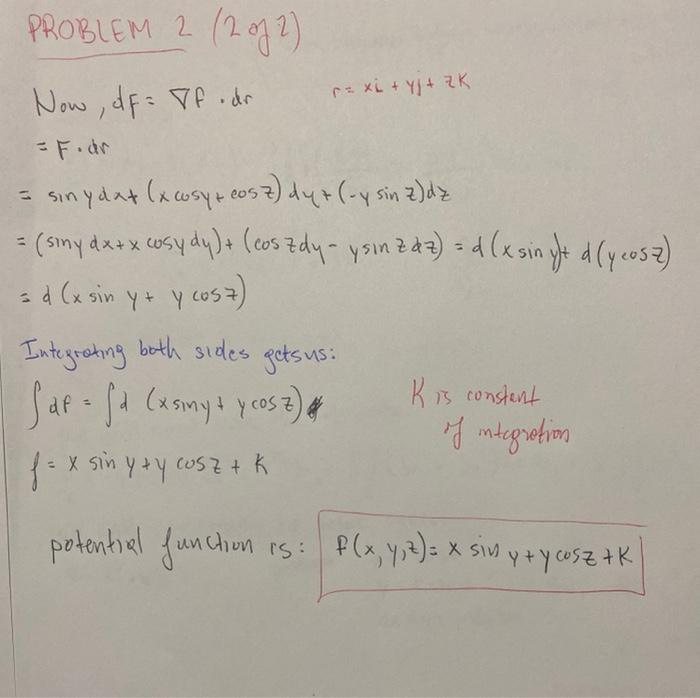 PROBLEM 2 (2 of 2)
Now, dF = ∇f · dr
r = xi + yj + zK
= F · dr
= sin y dx + (x cosy + cos z) dy + (-y sin z) dz
= (siny dx + x cosy dy) + (cos z dy - y sin z dz) = d(x sin y) + d(y cos z)
= d (x sin y + y cos z)
Integrating both sides gets us:
∫df = ∫d (x siny + y cos z)
K is constant
of integration
f = x sin y + y cos z + K
potential function is: f(x, y, z) = x sin y + y cos z + K